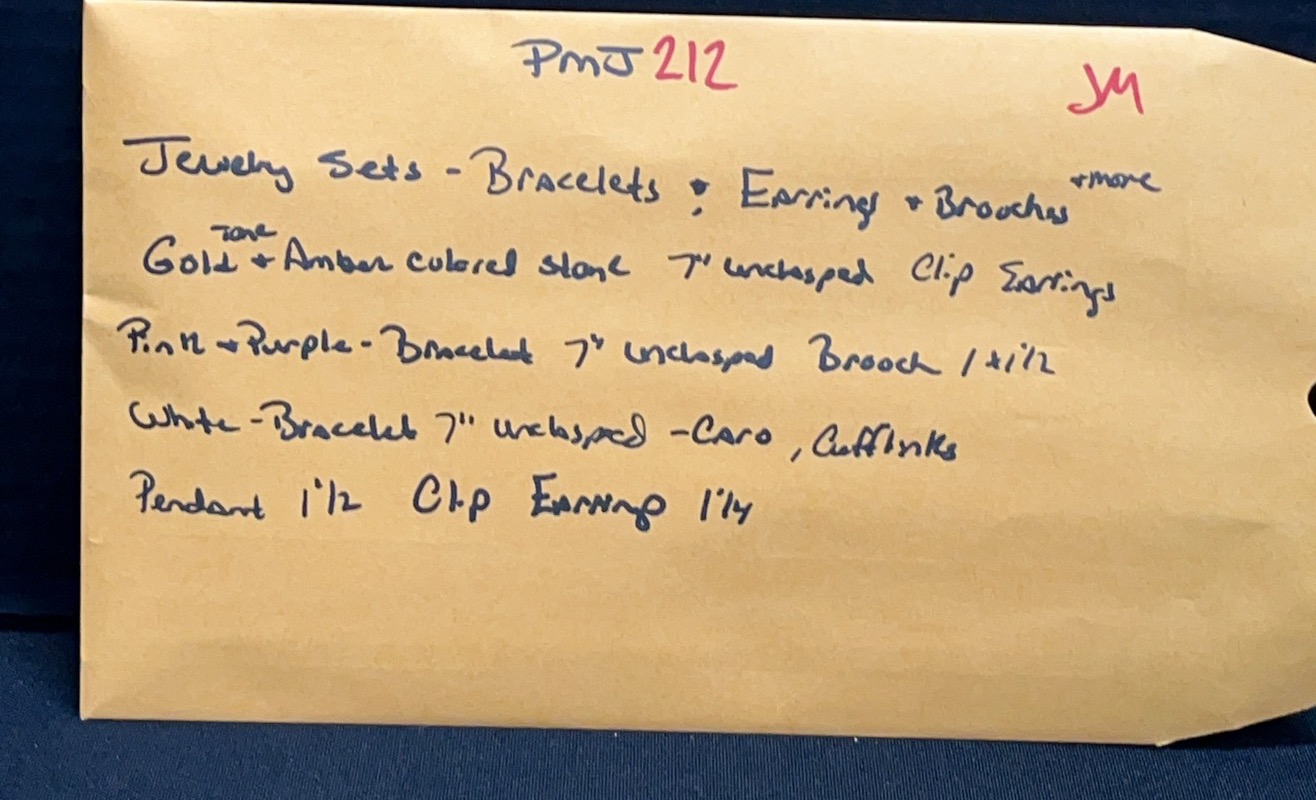 PMJ 212 JM
Jewelry Sets - Bracelets & Earrings + Brooches + more
Gold Tone + Amber colored stone 7" unclasped Clip Earrings
Pink + Purple - Bracelet 7" unclasped Brooch 1 x 1 1/2
White - Bracelet 7" unclasped - Caro, Cufflinks
Pendant 1 1/2 Clip Earrings 1 1/4